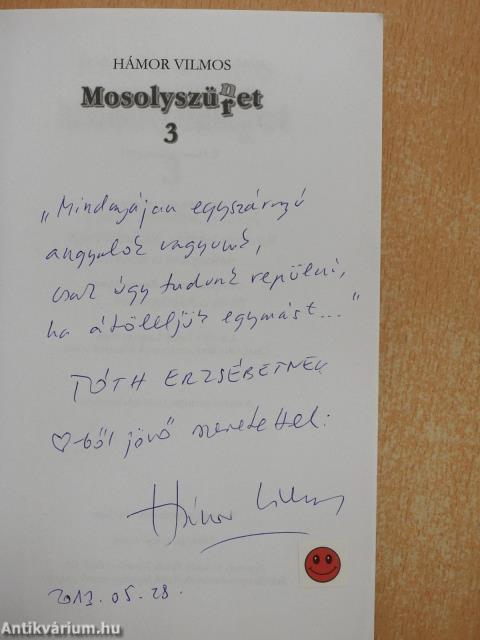 HÁMOR VILMOS
Mosolyszünret
3
„Mindannyian egyszárnyú
angyalok vagyunk,
csak úgy tudunk repülni,
ha átöleljük egymást..."
TÓTH ERZSÉBETNEK
♡-ből jövő szeretettel:
Hámor Vilmos
2013.05.28.
Antikvárium.hu